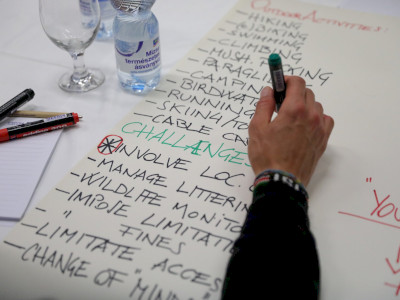 OUTDOOR ACTIVITIES:
- HIKING
- (e)BIKING
- SWIMMING
- CLIMBING
- MUSH. PICKING
- PARAGLIDING
- CAMPIN
- BIRDWAT
- RUNNING
- SKIING/TO
- CABLE CA
CHALLENGES
* INVOLVE LOC
- MANAGE LITTERIN
- WILDLIFE MONITO
- IMPOSE LIMITATI
- " FINES
- LIMITATE ACCES
- CHANGE OF "MIND
"YOU
természetes
ásványvíz